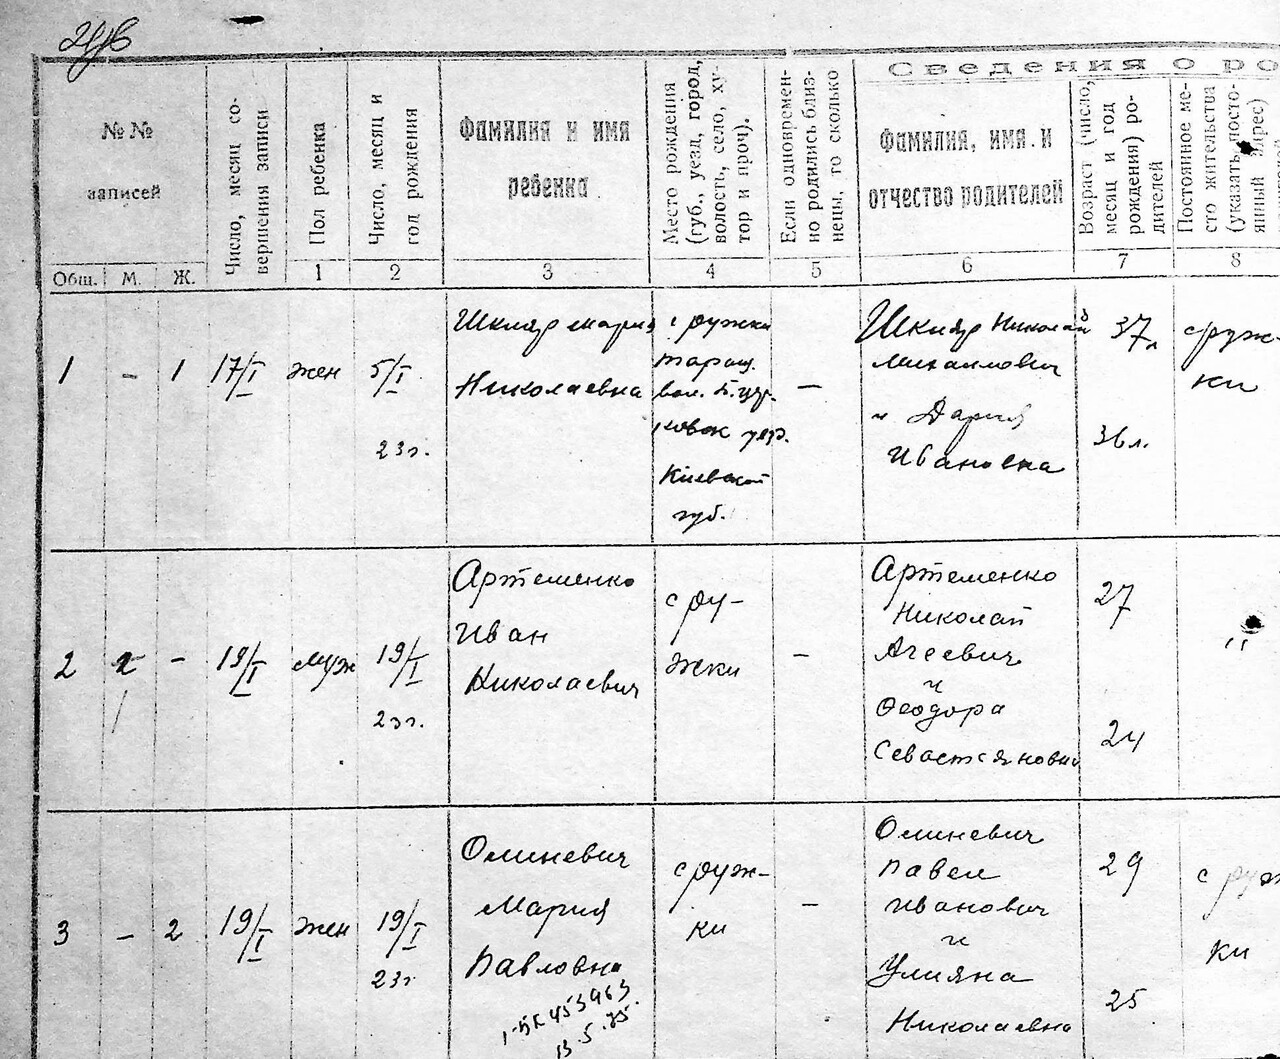 Сведения о ро
№ №
записей
Число, месяц со-
вершения записи
Пол ребенка
Число, месяц и
год рождения
Фамилия и имя
ребенка
Место рождения
(губ., уезд, город,
волость, село, ху-
тор и проч).
Если одновремен-
но родились близ-
нецы, то сколько
Фамилия, имя и
отчество родителей
Возраст (число,
месяц и год
рождения) ро-
дителей
Постоянное ме-
сто жительства
(указать посто-
янный адрес)
Общ. М. Ж. 1 2 3 4 5 6 7 8
1 – 1 17/I жен 5/I
23г.
Шкляр Мария
Николаевна
с ружки
Таращ.
вол. Б.цер-
ковск уезд.
Киевской
губ.
–
Шкляр Николай
Михайлович
и Дария
Ивановна
37л
36л.
с руж-
ки
2 1 – 19/I муж 19/I
23г.
Артеменко
Иван
Николаевич
с ру-
жки
–
Артеменко
Николай
Агеевич
и
Феодора
Севастьянович
27
24
"
3 – 2 19/I жен 19/I
23г
Олиневич
Мария
Павловна
453963
13.5.75
с руж-
ки
–
Олиневич
Павел
Иванович
и
Улияна
Николаевна
29
25
с руж
ки